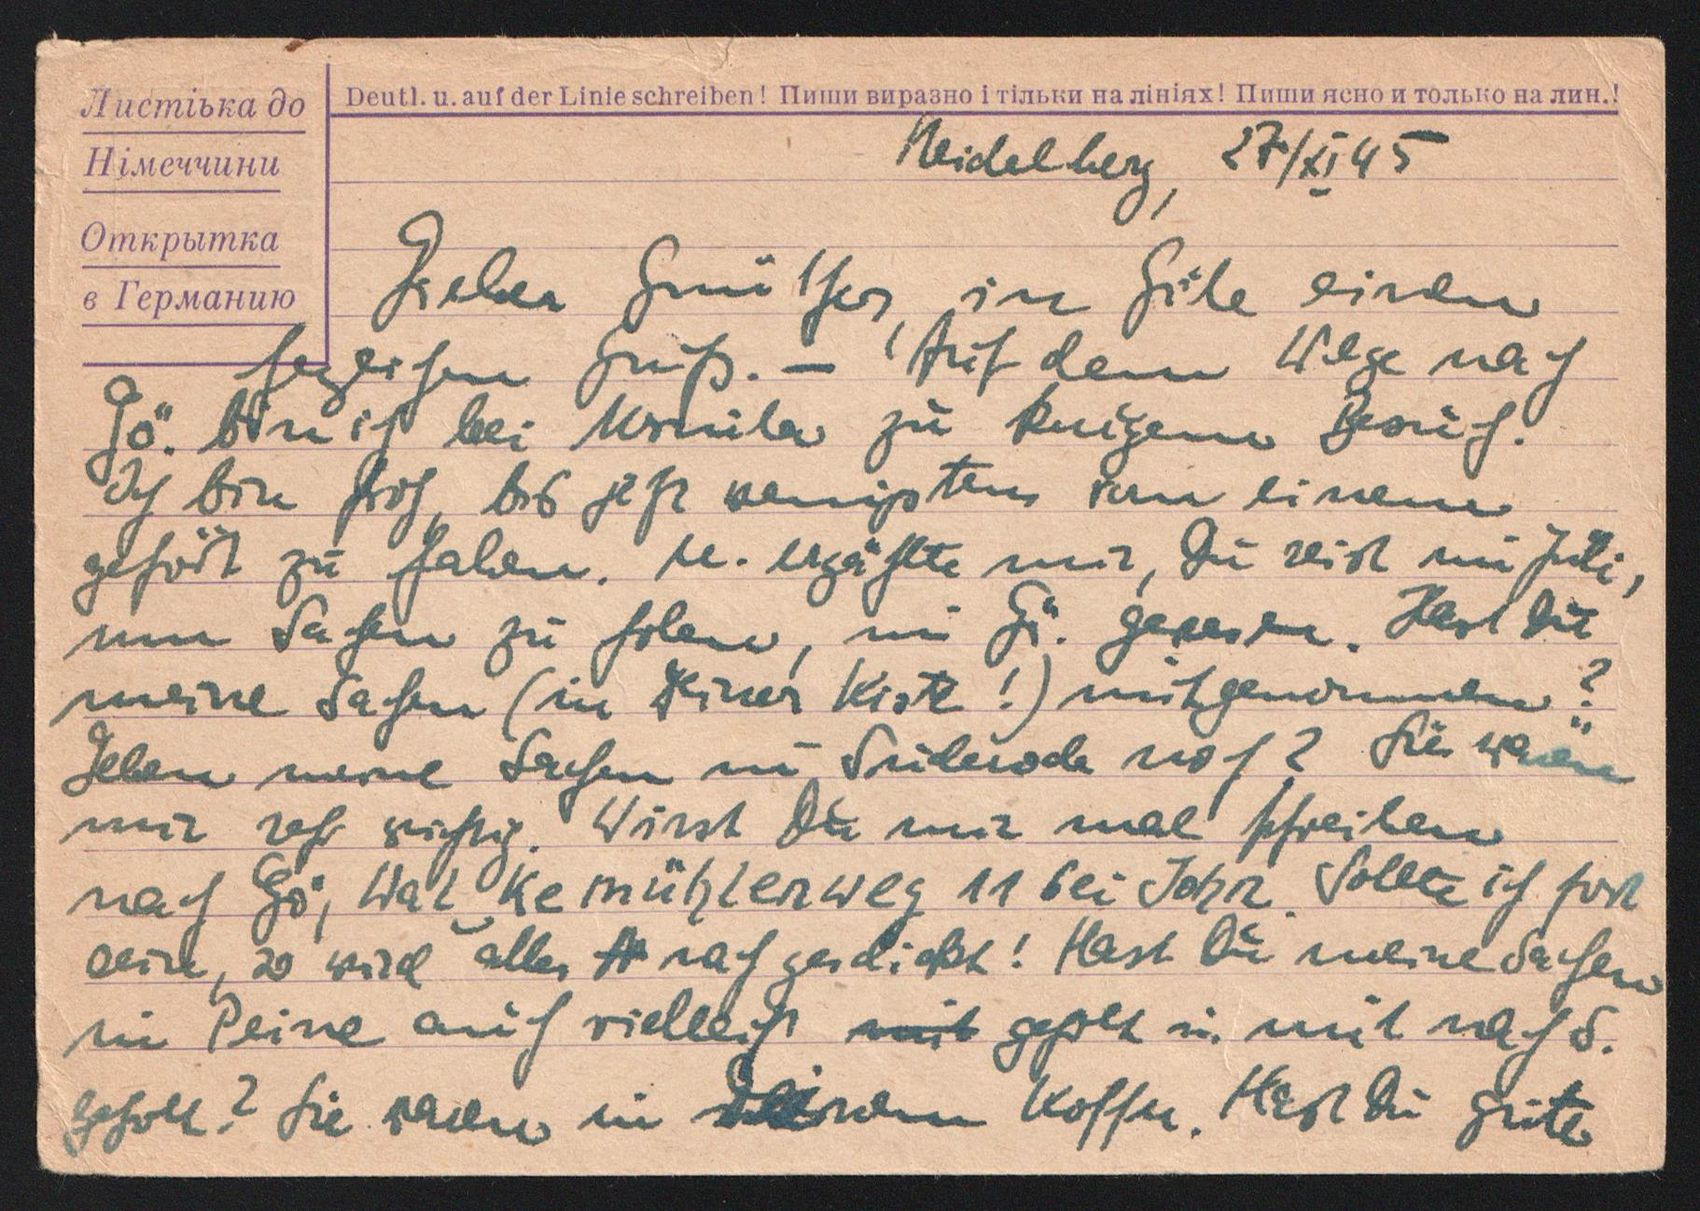 Листівка до
Німеччини
Открытка
в Германию
Deutl. u. auf der Linie schreiben! Пиши виразно і тільки на лініях! Пиши ясно и только на лин.!
Heidelberg, 27/XI 45
Lieber Günther, in Eile einen
herzlichen Gruß. — Auf dem Wege nach
Gö. bin ich bei Ursula zu kurzem Besuch.
Ich bin froh, bis jetzt wenigstens von einem
gehört zu haben. U. erzählte mir, Du seist im Juli,
um Sachen zu holen, in Gö. gewesen. Hast Du
meine Sachen (in Deiner Kiste!) mitgenommen?
Leben meine Sachen in Suderode noch? Sie wären
mir sehr wichtig. Wirst Du mir mal schreiben
nach Gö, Walkemühlenweg 11 bei John. Sollte ich fort
sein, so wird alles nachgeschickt! Hast Du meine Sachen
in Peine auch vielleicht mit geholt u. mit nach S.
geholt? Sie waren in Koffer. Hast Du gute